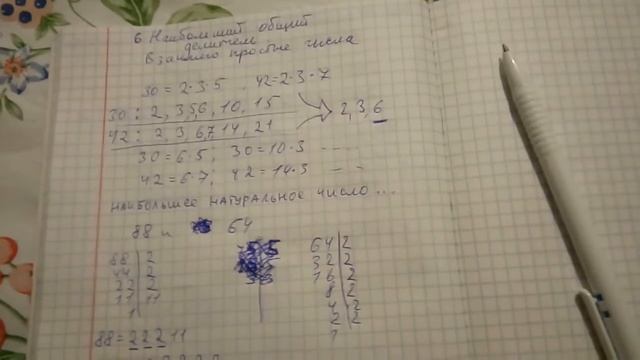 6. Наибольший общий
делитель
Взаимно простые числа
30 = 2·3·5 . 42 = 2·3·7
30 : 2, 3,5,6, 10, 15
42 : 2, 3, 6,7, 14, 21
2, 3, 6
30 = 6·5; 30 = 10·3 ----
42 = 6·7; 42 = 14·3 --
НАИБОЛЬШЕЕ НАТУРАЛЬНОЕ ЧИСЛО ...
88 и 64
88 | 2
44 | 2
22 | 2
11 | 11
1
64 | 2
32 | 2
16 | 2
8 | 2
4 | 2
2 | 2
1
88 = 2 2 2 11